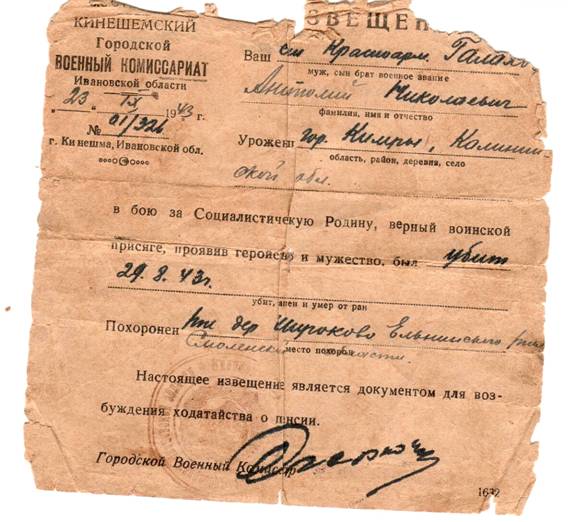 КИНЕШЕМСКИЙ
Городской
ВОЕННЫЙ КОМИССАРИАТ
Ивановской области
23 IX 1943 г.
№ 01/326
г. Кинешма, Ивановской обл.
ЗВЕЩЕН
Ваш сын Красноарм. Галахо
муж, сын брат военное звание
Анатолий Николаевич
фамилия, имя и отчество
Урожен. гор. Кимры, Калинин
область, район, деревня, село
ской обл.
в бою за Социалистичекую Родину, верный воинской
присяге, проявив геройство и мужество, был убит
29.8.43г.
убит, ранен и умер от ран
Похоронен дер. Широково Ельнинского
Смоленской области.
место похорон
Настоящее извещение является документом для воз-
буждения ходатайства о пенсии.
Городской Военный Комиссар
1632